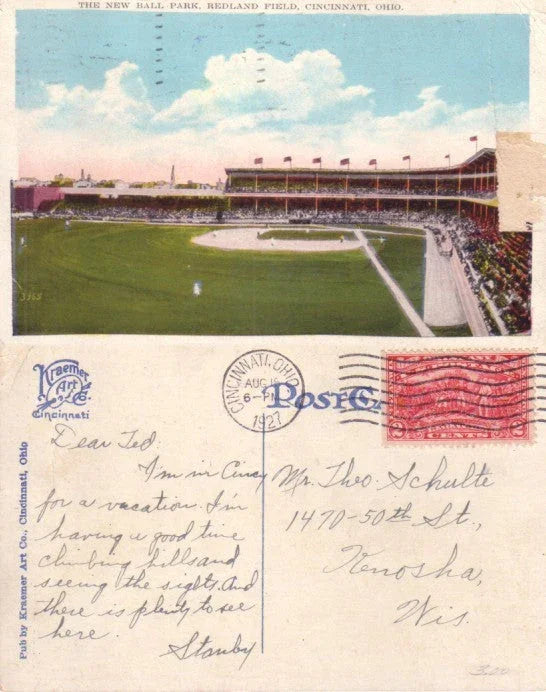 THE NEW BALL PARK, REDLAND FIELD, CINCINNATI, OHIO.
3365
Kraemer
Art Co.
Cincinnati
CINCINNATI, OHIO
AUG
6-PM
1927
POST
CENTS
Pub by Kraemer Art Co., Cincinnati, Ohio
Dear Ted:
I'm in Cincy
for a vacation. I'm
having a good time
climbing hills and
seeing the sights. And
there is plenty to see
here.
Stanby
Mr. Theo. Schulte
1470-50th St.,
Kenosha,
Wis.
3.00